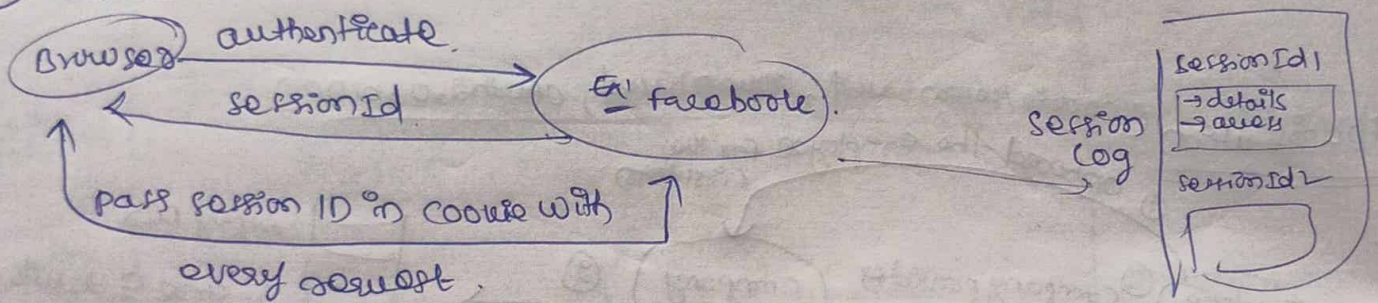 Browser
authenticate.
sessionId
Ex: facebook.
pass session ID in cookie with
every request.
session
log
sessionId1
→details
→access
sessionId2